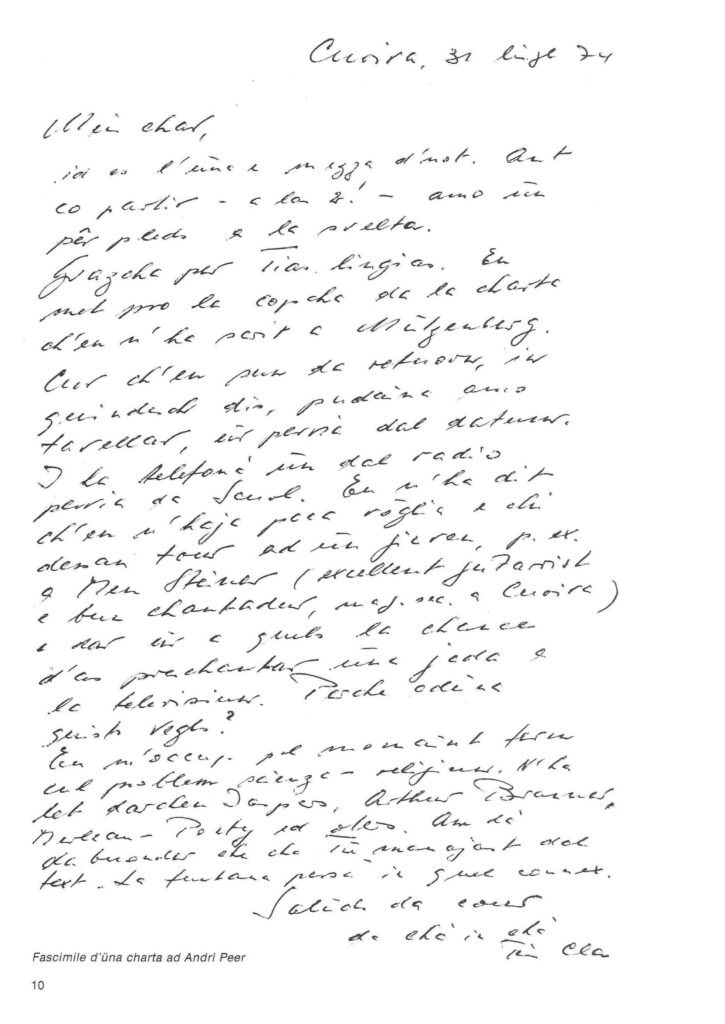 Cuoira, 31 lügl 74
Mein char,
id es l'üna e mezza d'not. Ant
co partir - a las 2! - amo ün
pêr pleds a la svelta.
Grazcha per Tias lingias. Eu
met pro la copcha da la charta
ch'eu n'ha scrit a Mützenberg.
Cur ch'eu sun da retuorn, in
quindesch dis, pudaina amo
tavellar, eir pervia dal datum.
I ha telefonà ün dal radio
pervia da Scuol. Eu n'ha dit
ch'eu n'haja paca vöglia e chi
dessan tour ad ün giuven, p. ex.
a Men Steiner (excellent guitarrist
e bun chantadur, mag. sec. a Cuoira)
e dar eir a quels la chance
d'as preschantar üna jada a
la televisiun. Perche adüna
quists vegls?
Eu m'occup pel momaint ferm
cul problem scienza - religiun. N'ha
let Jaspers, Arthur
Merleau-Ponty ed oters. Am dà
da buonder che cha Tü manajast dal
text. La funtana persa in quel connex.
Salüds da cour
da chà in chà
Teis Cla
Fascimile d'üna charta ad Andri Peer
10